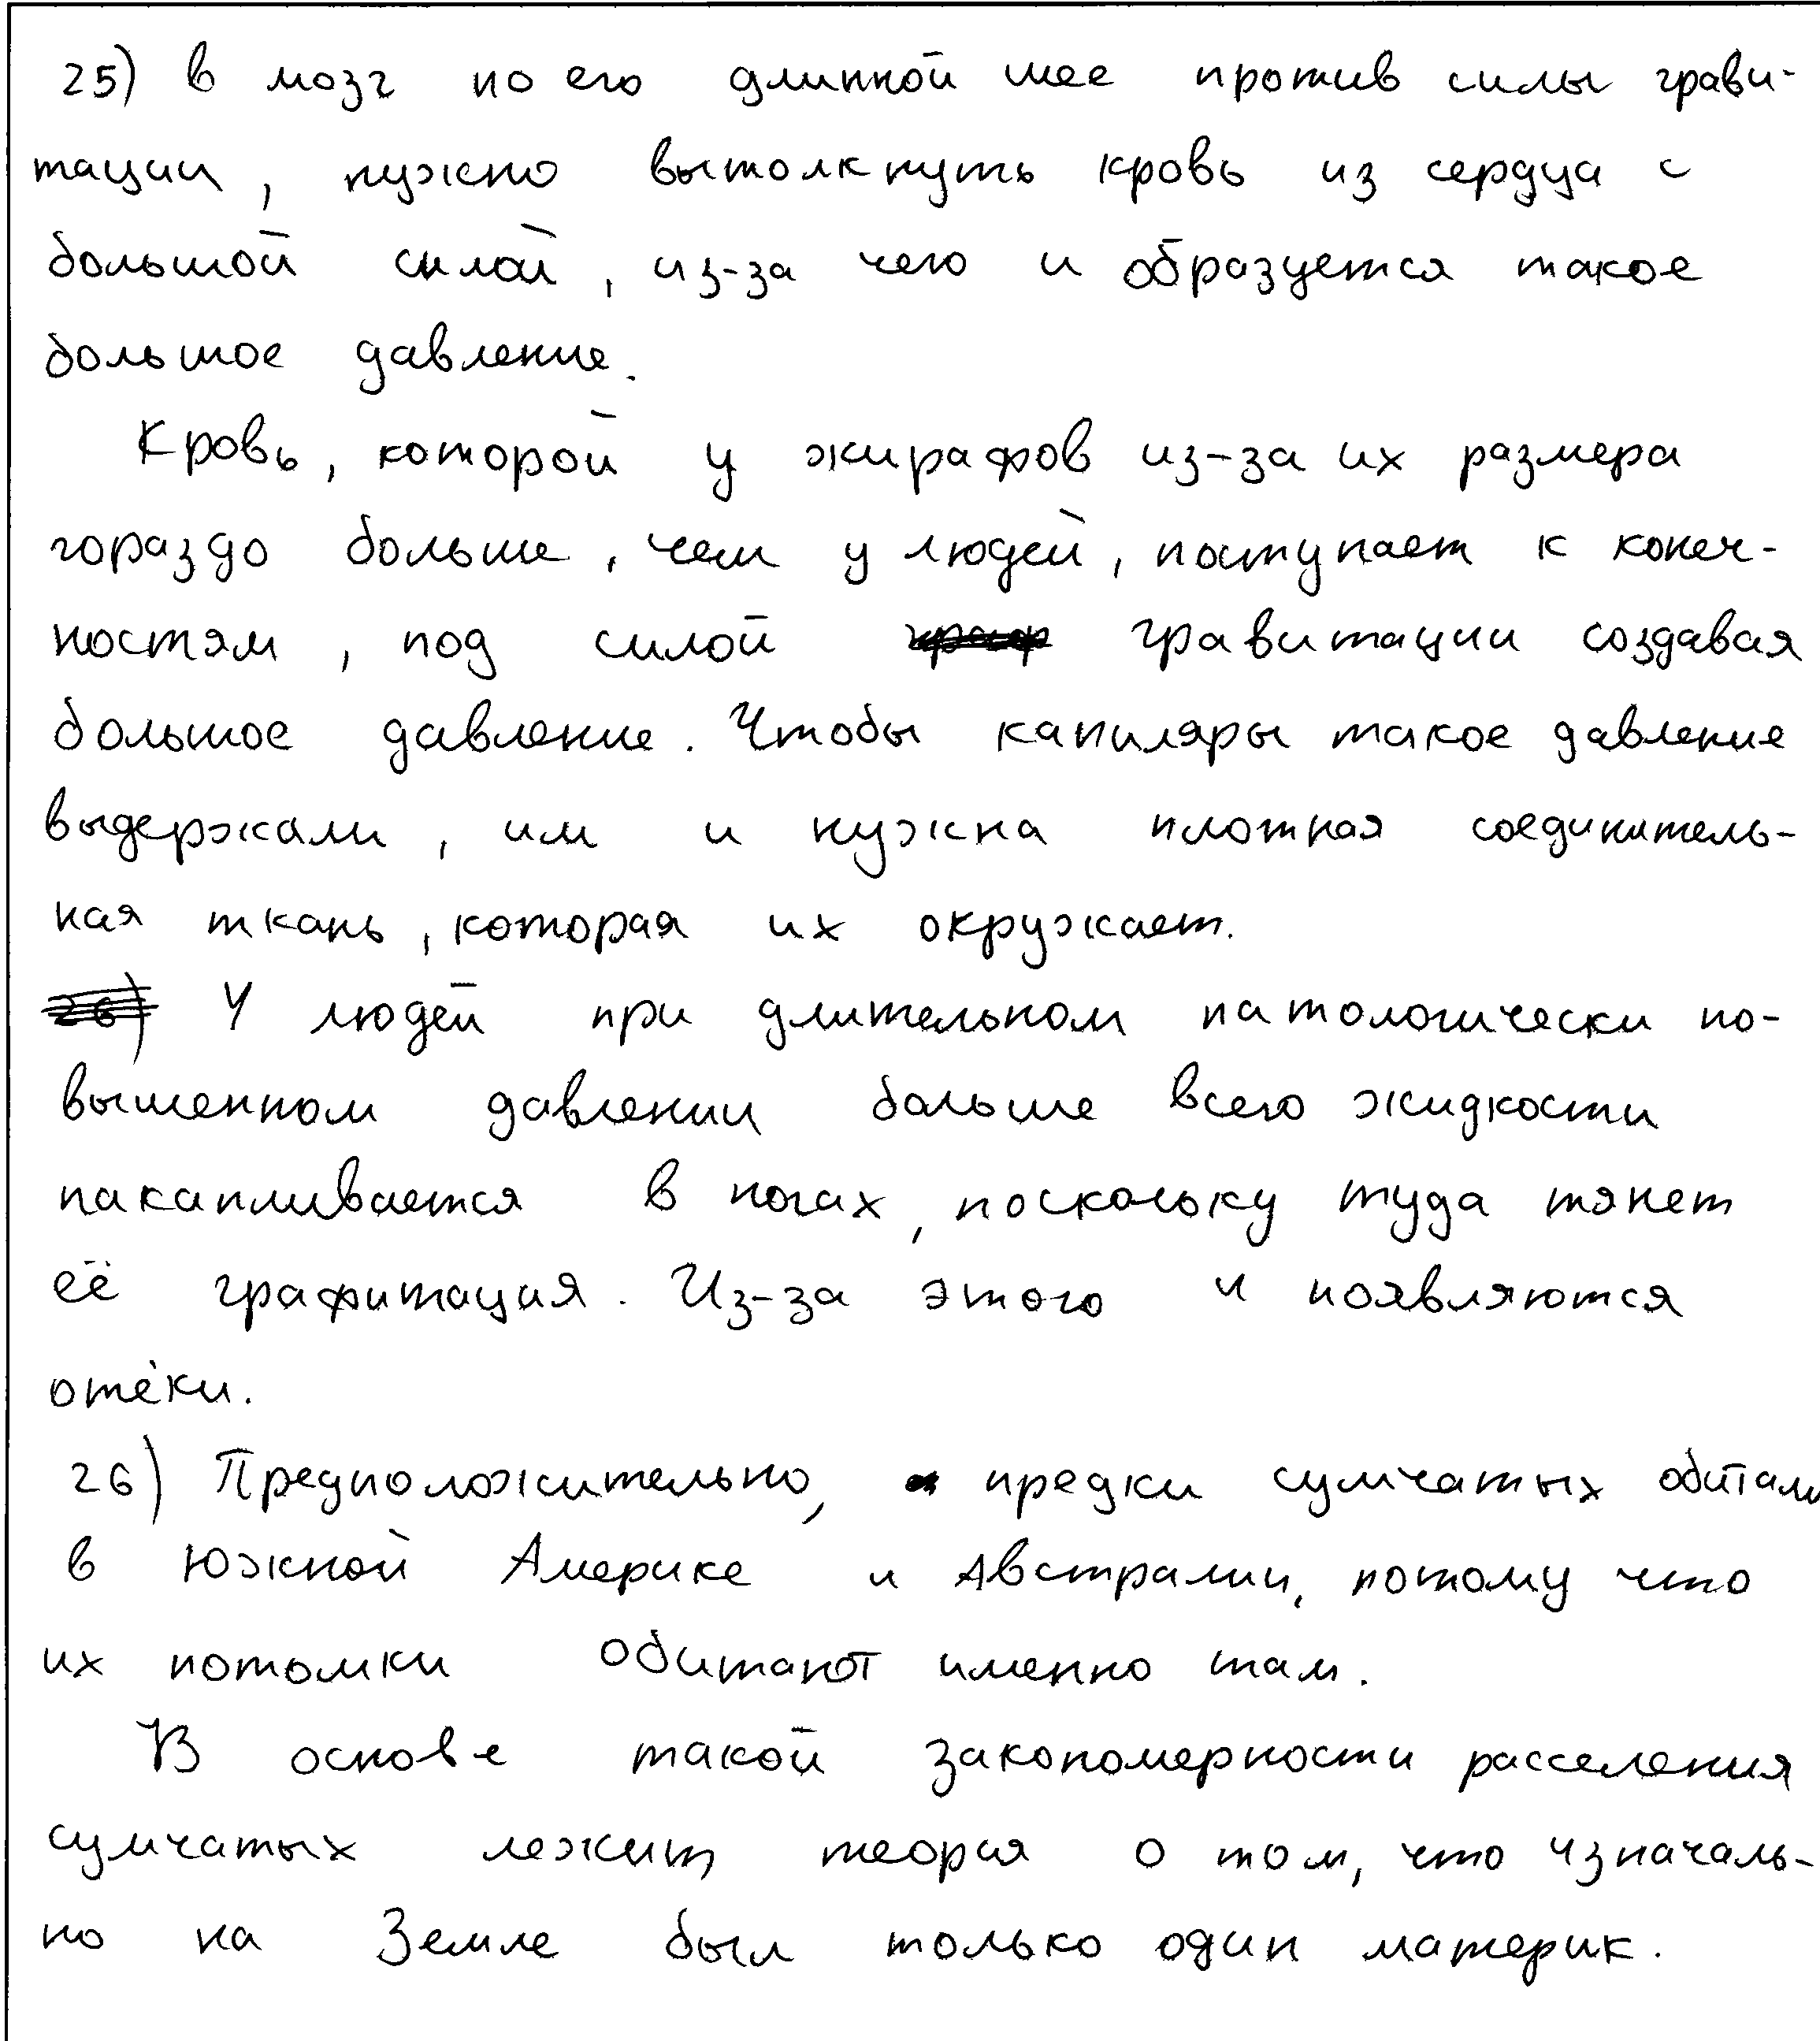 25) в мозг по его длинной шее против силы грави-
тации, нужно вытолкнуть кровь из сердца с
большой силой, из-за чего и образуется такое
большое давление.
Кровь, которой у жирафов из-за их размера
гораздо больше, чем у людей, поступает к конеч-
ностям, под силой гравитации создавая
большое давление. Чтобы капиляры такое давление
выдержали, им и нужна плотная соединитель-
ная ткань, которая их окружает.
26) У людей при длительном патологически по-
вышенном давлении больше всего жидкости
накапливается в ногах, поскольку туда тянет
её графитация. Из-за этого и появляются
отёки.
26) Предположительно, предки сумчатых обитали
в Южной Америке и Австралии, потому что
их потомки обитают именно там.
В основе такой закономерности расселения
сумчатых лежит теория о том, что изначаль-
но на Земле был только один материк.